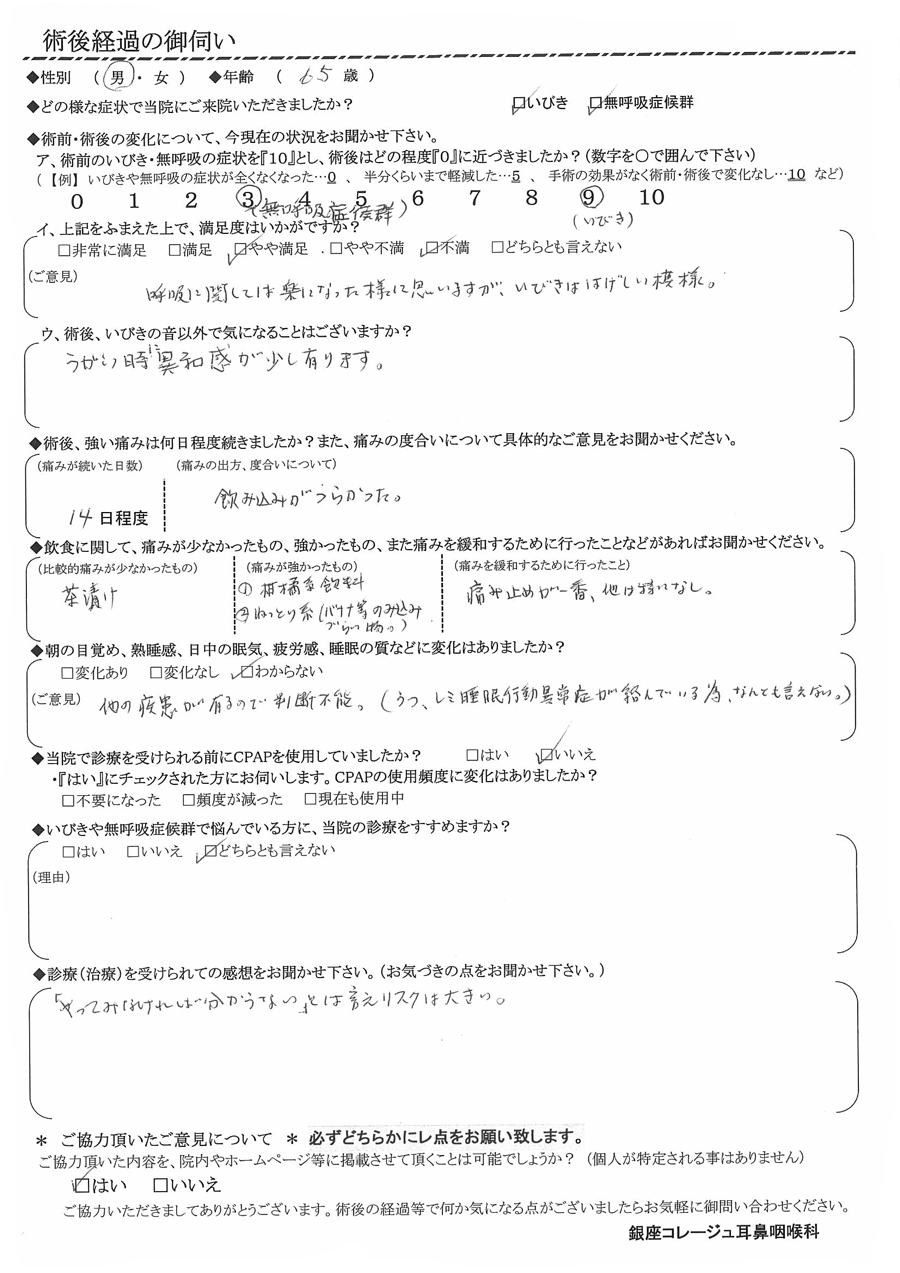 術後経過の御伺い
◆性別 (男・女) ◆年齢 (65歳)
◆どの様な症状で当院にご来院いただきましたか? ☑いびき ☑無呼吸症候群
◆術前・術後の変化について、今現在の状況をお聞かせ下さい。
ア、術前のいびき・無呼吸の症状を『10』とし、術後はどの程度『0』に近づきましたか?(数字を○で囲んで下さい)
(【例】いびきや無呼吸の症状が全くなくなった…0 、 半分くらいまで軽減した…5 、 手術の効果がなく術前・術後で変化なし…10 など)
0 1 2 3 4 5 6 7 8 9 10
(無呼吸症候群) (いびき)
イ、上記をふまえた上で、満足度はいかがですか?
□非常に満足 □満足 ☑やや満足 □やや不満 ☑不満 □どちらとも言えない
(ご意見)
呼吸に関しては楽になった様に思いますが、いびきははげしい模様。
ウ、術後、いびきの音以外で気になることはございますか?
うがい時に異和感が少し有ります。
◆術後、強い痛みは何日程度続きましたか?また、痛みの度合いについて具体的なご意見をお聞かせください。
(痛みが続いた日数) (痛みの出方、度合いについて)
14日程度 飲み込みがつらかった。
◆飲食に関して、痛みが少なかったもの、強かったもの、また痛みを緩和するために行ったことなどがあればお聞かせください。
(比較的痛みが少なかったもの) (痛みが強かったもの) (痛みを緩和するために行ったこと)
茶漬け ①柑橘系飲料 痛み止めが一番、他は特になし。
②ねっとり系(バナナ等のみ込み
づらい物。)
◆朝の目覚め、熟睡感、日中の眠気、疲労感、睡眠の質などに変化はありましたか?
□変化あり □変化なし ☑わからない
(ご意見) 他の疾患が有るので判断不能。(うつ、レミ睡眠行動異常症が絡んでいる為、なんとも言えない。)
◆当院で診療を受けられる前にCPAPを使用していましたか? □はい ☑いいえ
・『はい』にチェックされた方にお伺いします。CPAPの使用頻度に変化はありましたか?
□不要になった □頻度が減った □現在も使用中
◆いびきや無呼吸症候群で悩んでいる方に、当院の診療をすすめますか?
□はい □いいえ ☑どちらとも言えない
(理由)
◆診療(治療)を受けられての感想をお聞かせ下さい。(お気づきの点をお聞かせ下さい。)
「やってみなければ分からない」とは言えリスクは大きい。
＊ ご協力頂いたご意見について ＊ 必ずどちらかにレ点をお願い致します。
ご協力頂いた内容を、院内やホームページ等に掲載させて頂くことは可能でしょうか? (個人が特定される事はありません)
☑はい □いいえ
ご協力いただきましてありがとうございます。術後の経過等で何か気になる点がございましたらお気軽に御問い合わせください。
銀座コレージュ耳鼻咽喉科